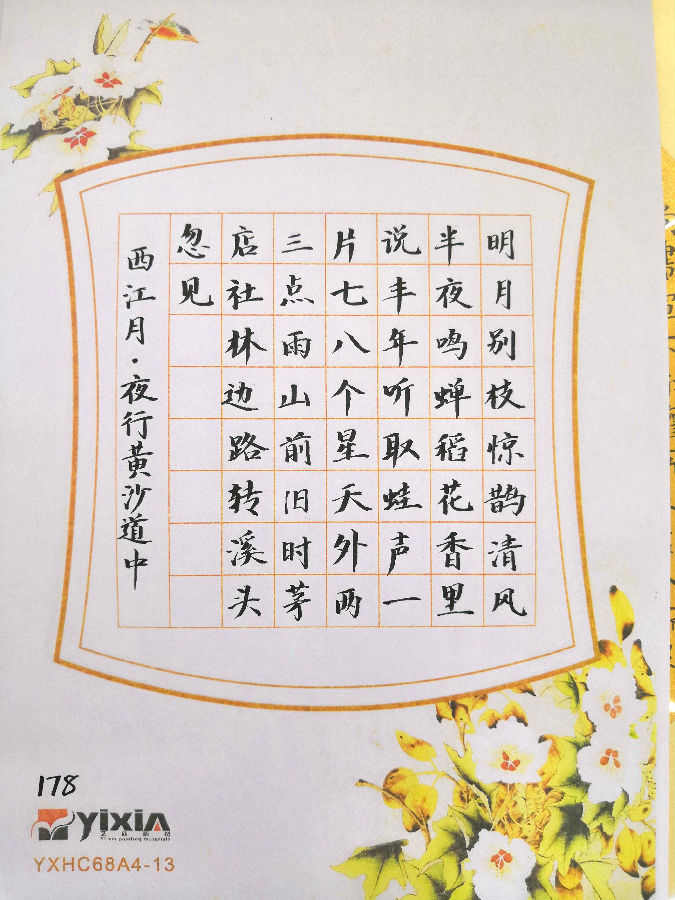 明月别枝惊鹊清风
半夜鸣蝉稻花香里
说丰年听取蛙声一
片七八个星天外两
三点雨山前旧时茅
店社林边路转溪头
忽见
西江月·夜行黄沙道中
178
yixin
YXHC68A4-13